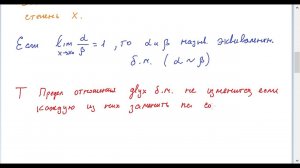 степень x.
Если lim x→x₀ α/β = 1, то α и β назыв. эквивалентн.
б.м. (α ~ β)
Т Предел отношения двух б.м. не изменится если
каждую из них заменить на со